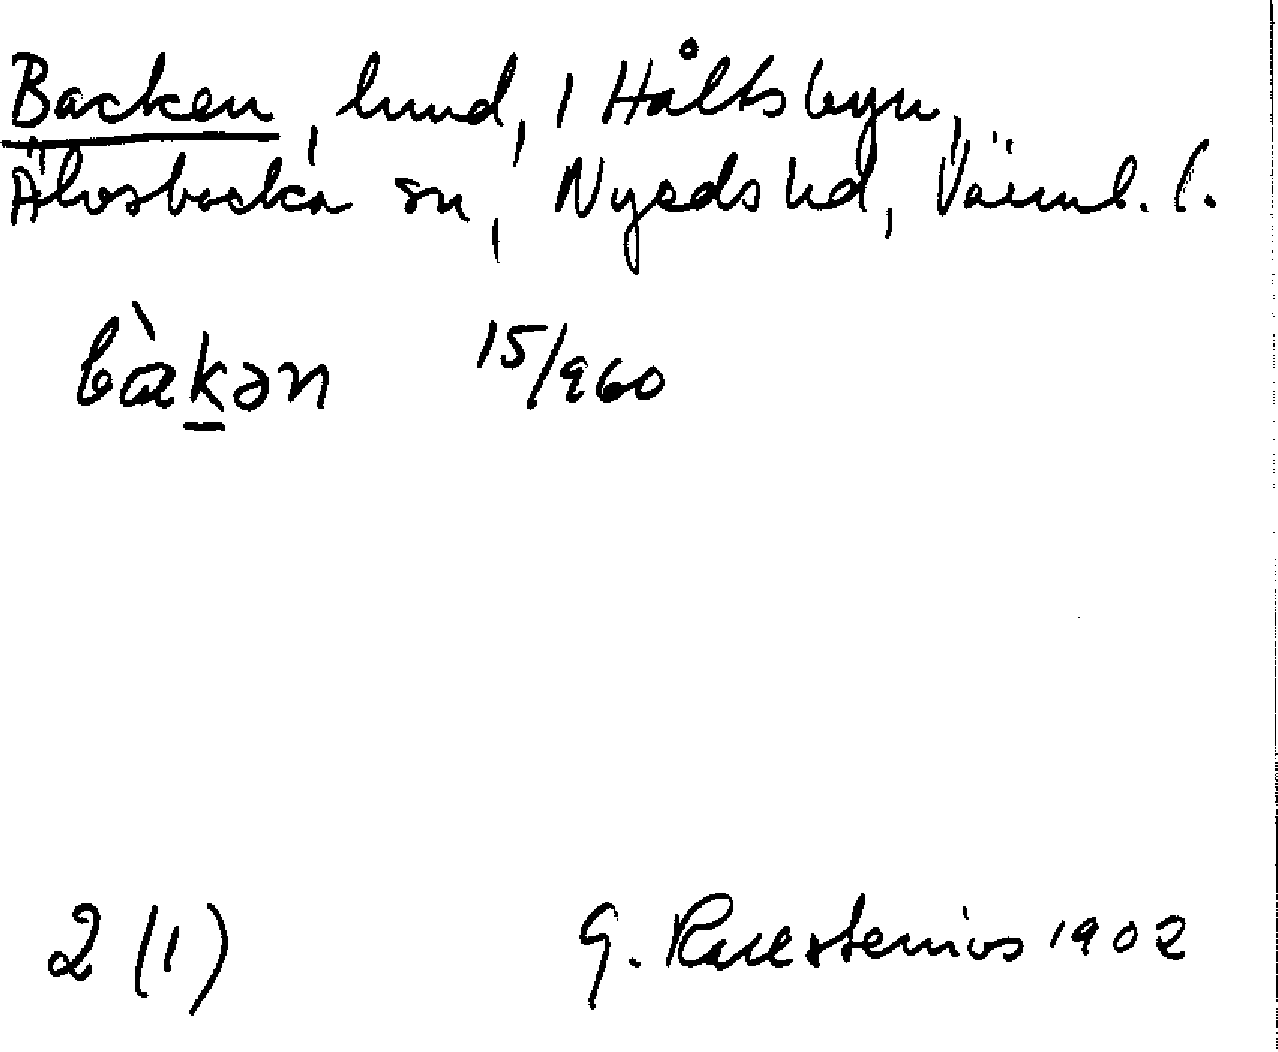 Backen, lund, 1 Håltsbyn,
Älvsbacka sn, Nyeds hd, Värml. l.
bàkən 15/960
2 (1) G. Kallstenius 1902